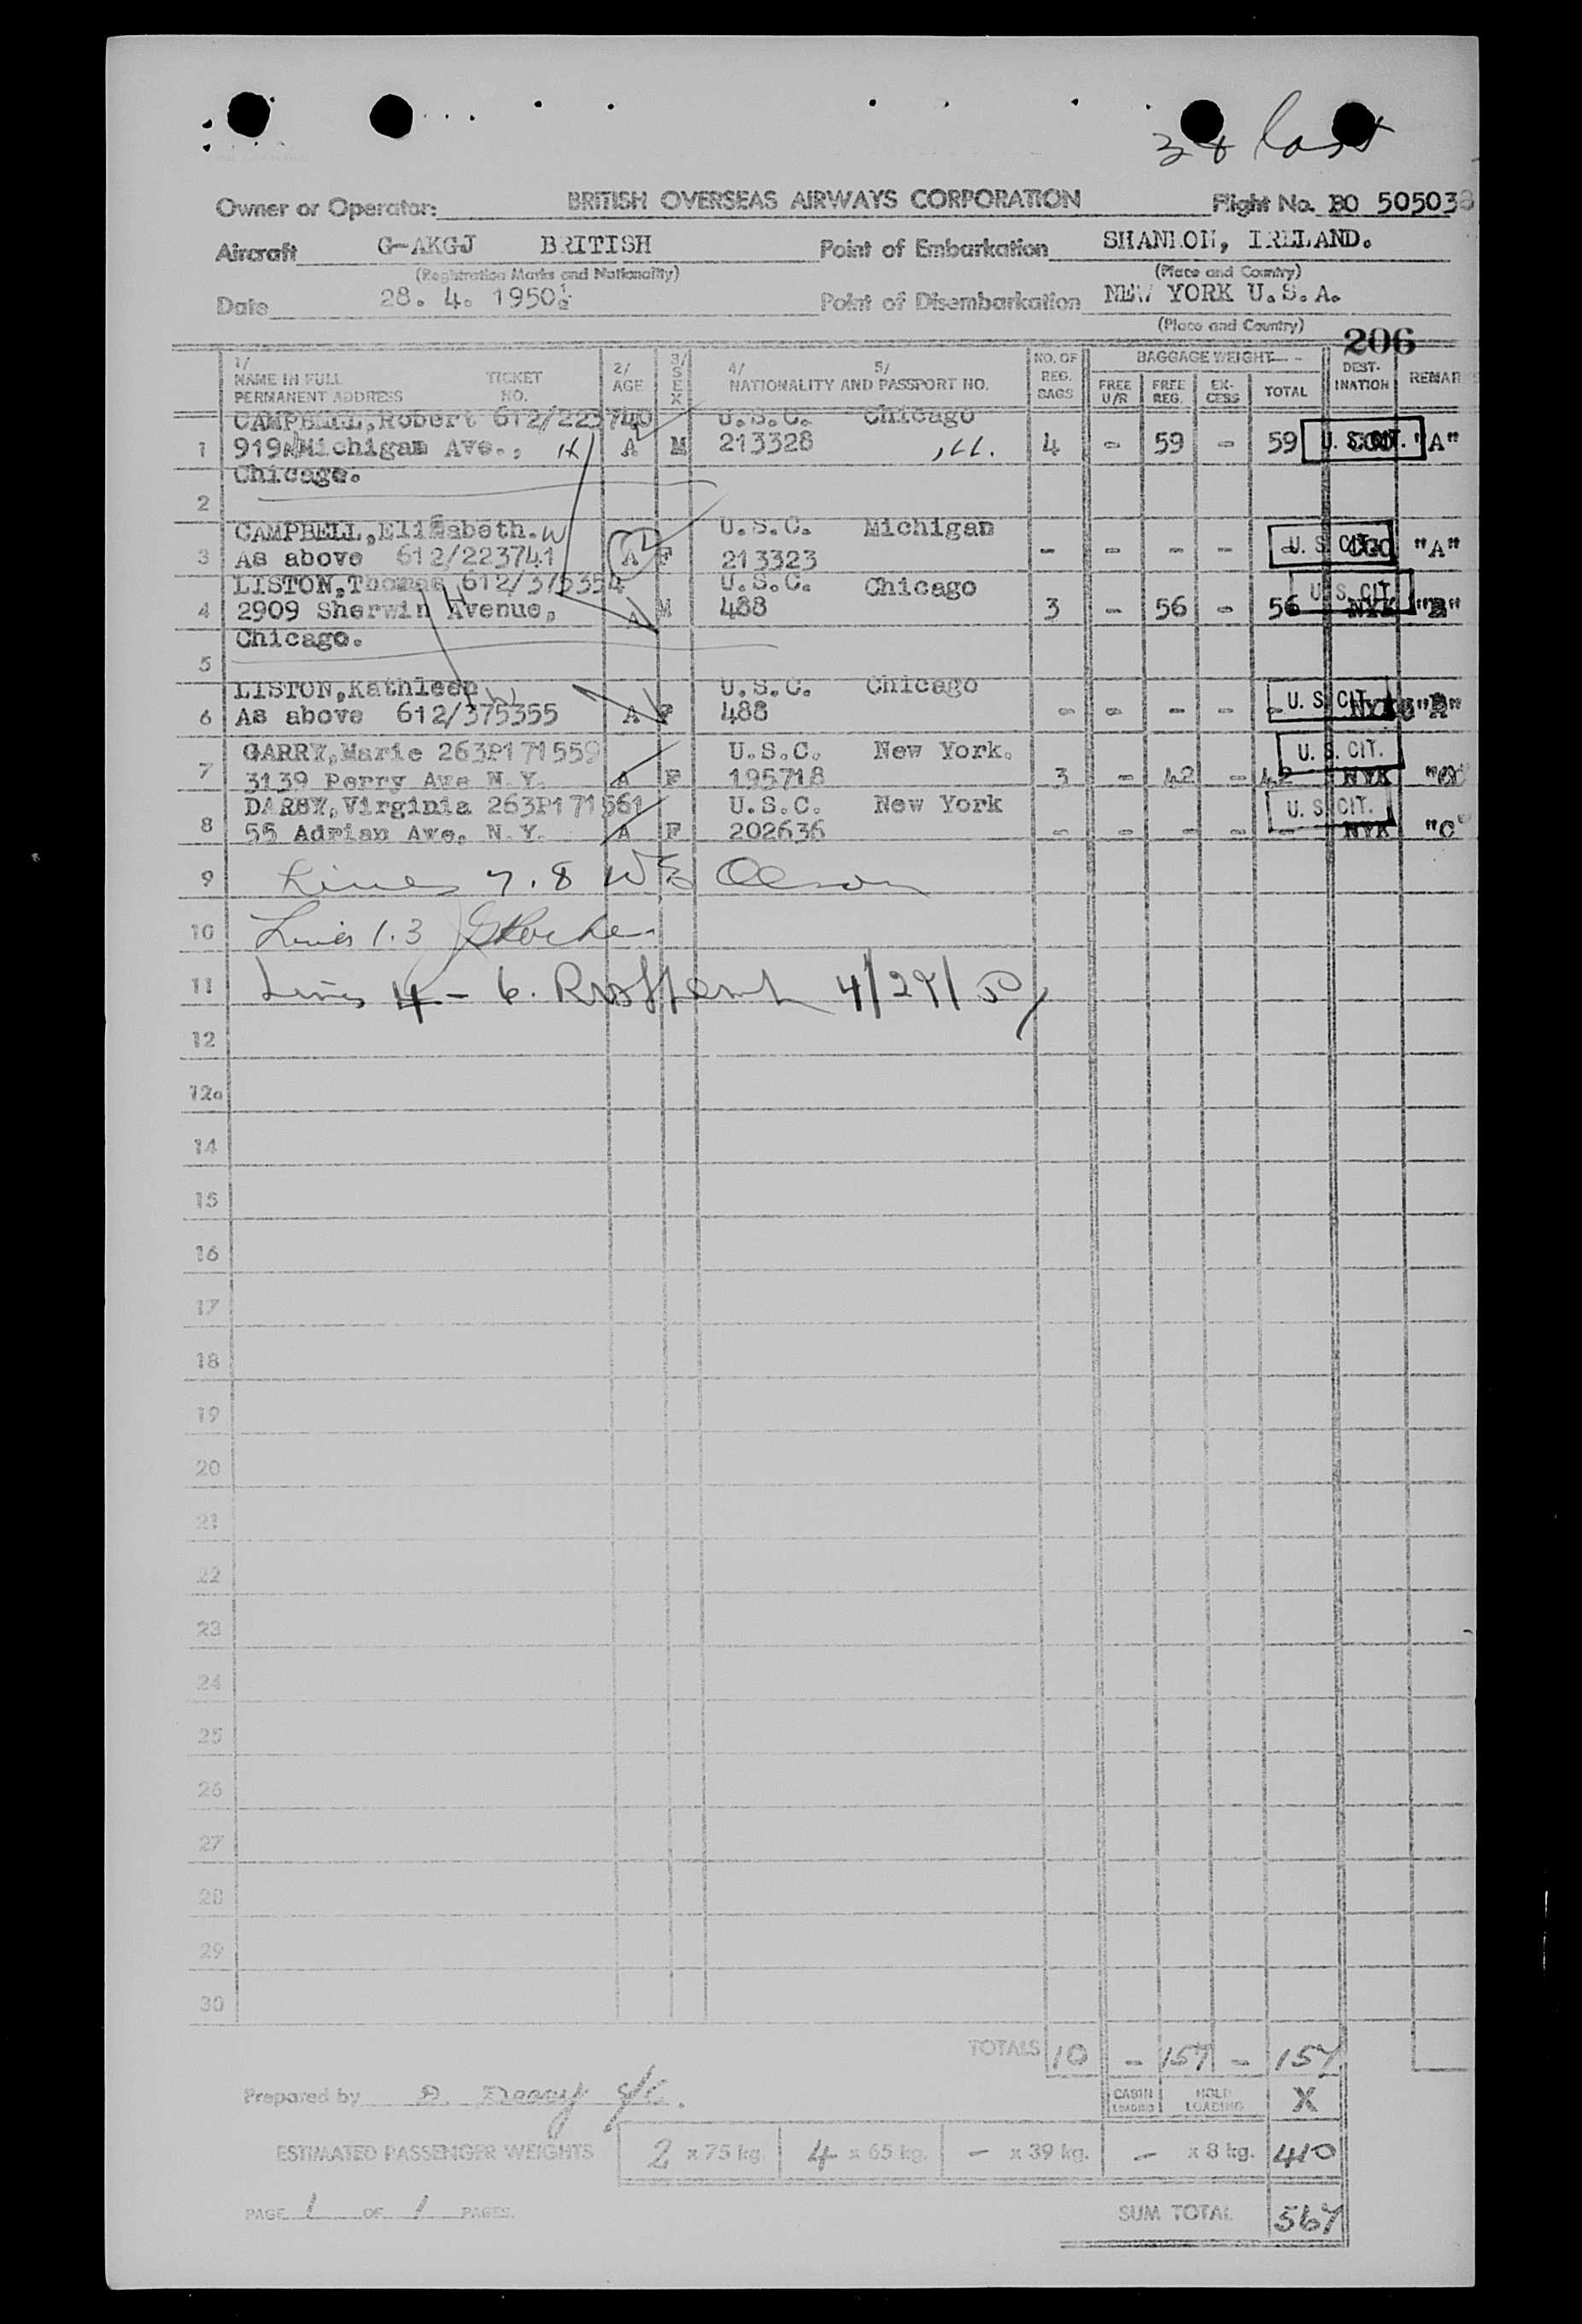 3 & last
Owner or Operator: BRITISH OVERSEAS AIRWAYS CORPORATION Flight No. BO 505038
Aircraft G-AKGJ BRITISH Point of Embarkation SHANNON, IRELAND.
(Registration Marks and Nationality) (Place and Country)
Date 28. 4. 1950. Point of Disembarkation NEW YORK U.S.A.
(Place and Country)
206
1/ NAME IN FULL PERMANENT ADDRESS TICKET NO. 2/ AGE 3/ SEX 4/ 5/ NATIONALITY AND PASSPORT NO. NO. OF REG. BAGS BAGGAGE WEIGHT FREE U/R FREE REG. EX-CESS TOTAL DEST-INATION REMARKS
CAMPBELL,Robert 612/223740 U.S.C. Chicago
1 919 Michigan Ave., A M 213328 ,LL. 4 - 59 - 59 U.S. CIT. CGO "A"
Chicago.
2
CAMPBELL,Elizabeth. W U.S.C. Michigan
3 As above 612/223741 A F 213323 - - - - - U.S. CIT. CGO "A"
LISTON,Thomas 612/375354 U.S.C. Chicago
4 2909 Sherwin Avenue, A M 488 3 - 56 - 56 U.S. CIT. NYK "B"
Chicago.
5
LISTON,Kathleen W U.S.C. Chicago
6 As above 612/375355 A F 488 - - - - - U.S. CIT. NYK
GARRY,Marie 263P171559 U.S.C. New York.
7 3139 Perry Ave N.Y. A F 195718 3 - 42 - 42 U.S. CIT. NYK
DARBY,Virginia 263P171561 U.S.C. New York
8 55 Adrian Ave. N.Y. A F 202636 - - - - - U.S. CIT. NYK "C"
9 Lines 7.8 WE Olson
10 Lines 1.3
11 Lines 4 - 6. 4/29/50
12
12a
14
15
16
17
18
19
20
21
22
23
24
25
26
27
28
29
30
TOTALS 10 - 157 - 157
Prepared by CABIN LOADING HOLD LOADING X
ESTIMATED PASSENGER WEIGHTS 2 x 75 kg. 4 x 65 kg. - x 39 kg. - x 8 kg. 410
PAGE 1 OF 1 PAGES. SUM TOTAL 567